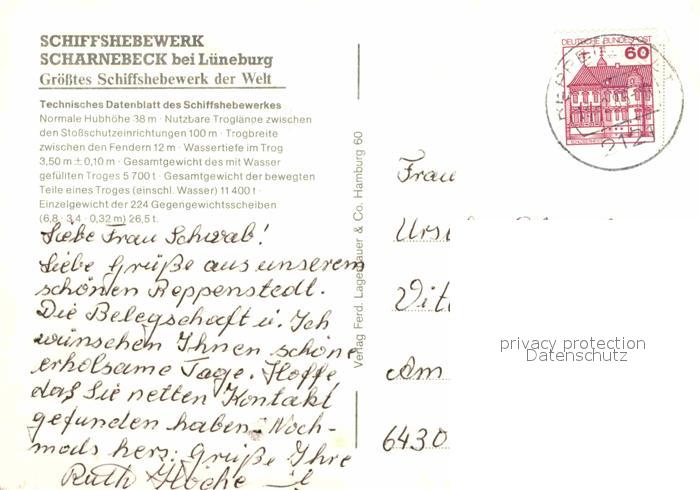 SCHIFFSHEBEWERK
SCHARNEBECK bei Lüneburg
Größtes Schiffshebewerk der Welt
Technisches Datenblatt des Schiffshebewerkes
Normale Hubhöhe 38 m · Nutzbare Troglänge zwischen
den Stoßschutzeinrichtungen 100 m · Trogbreite
zwischen den Fendern 12 m · Wassertiefe im Trog
3,50 m ± 0,10 m · Gesamtgewicht des mit Wasser
gefüllten Troges 5 700 t · Gesamtgewicht der bewegten
Teile eines Troges (einschl. Wasser) 11 400 t ·
Einzelgewicht der 224 Gegengewichtsscheiben
(6,8 · 3,4 · 0,32 m) 26,5 t.
Liebe Frau Schwab!
Liebe Grüße aus unserem
schönen Reppenstedt.
Die Belegschaft u. Ich
wünschen Ihnen schöne
erholsame Tage. Hoffe,
daß Sie netten Kontakt
gefunden haben. Noch-
mals herz. Grüße Ihre
Ruth
Verlag Ferd. Lagerbauer & Co. Hamburg 60
DEUTSCHE BUNDESPOST
60
212
Frau
Am
6430
privacy protection
Datenschutz